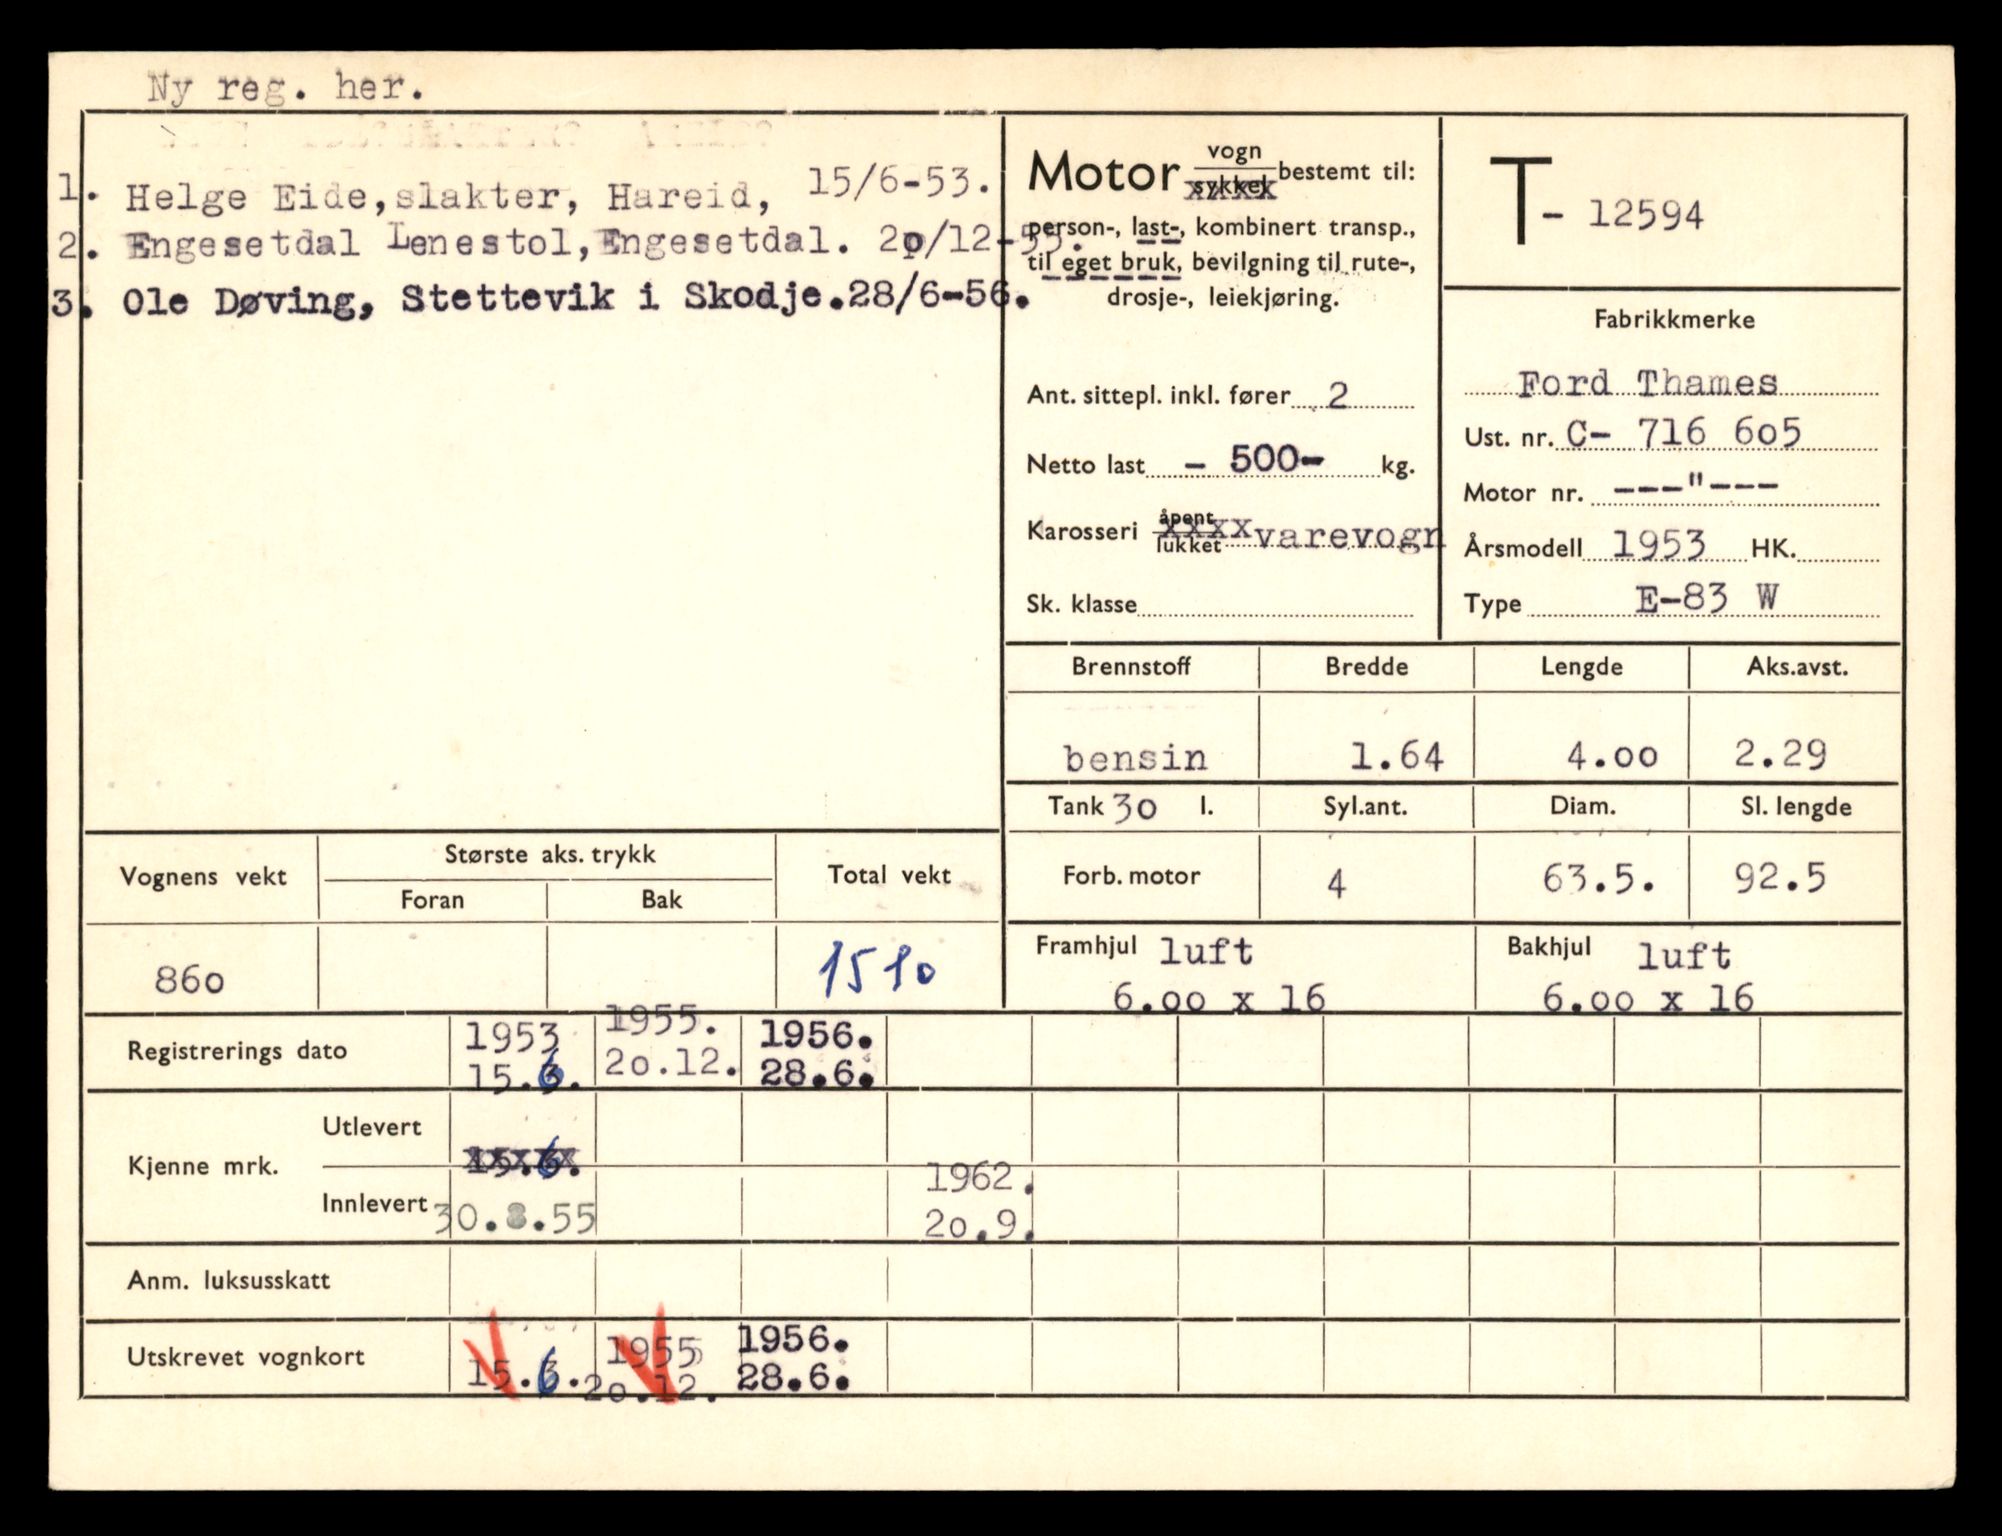 Ny reg. her.
1. Helge Eide,slakter, Hareid, 15/6-53.
2. Engesetdal Lenestol,Engesetdal. 2o/12-55.
3. Ole Døving, Stettevik i Skodje.28/6-56.
Motor vogn sykkel bestemt til:
person-, last-, kombinert transp.,
til eget bruk, bevilgning til rute-,
drosje-, leiekjøring.
Ant. sittepl. inkl. fører 2
Netto last - 500- kg.
Karosseri åpent lukket xxxx varevogn
Sk. klasse
T- 12594
Fabrikkmerke
Ford Thames
Ust. nr. C- 716 6o5
Motor nr. ---"---
Årsmodell 1953 HK.
Type E-83 W
Brennstoff Bredde Lengde Aks.avst.
bensin 1.64 4.oo 2.29
Tank 3o l. Syl.ant. Diam. Sl. lengde
Forb. motor 4 63.5. 92.5
Framhjul luft Bakhjul luft
6.oo x 16 6.oo x 16
Vognens vekt Største aks. trykk Total vekt
Foran Bak
86o 1510
Registrerings dato 1953 1955. 1956.
15.6. 2o.12. 28.6.
Kjenne mrk. Utlevert 15.6.
Innlevert 30.8.55 1962.
2o.9.
Anm. luksusskatt
Utskrevet vognkort 1955 1956.
15.6. 2o.12. 28.6.